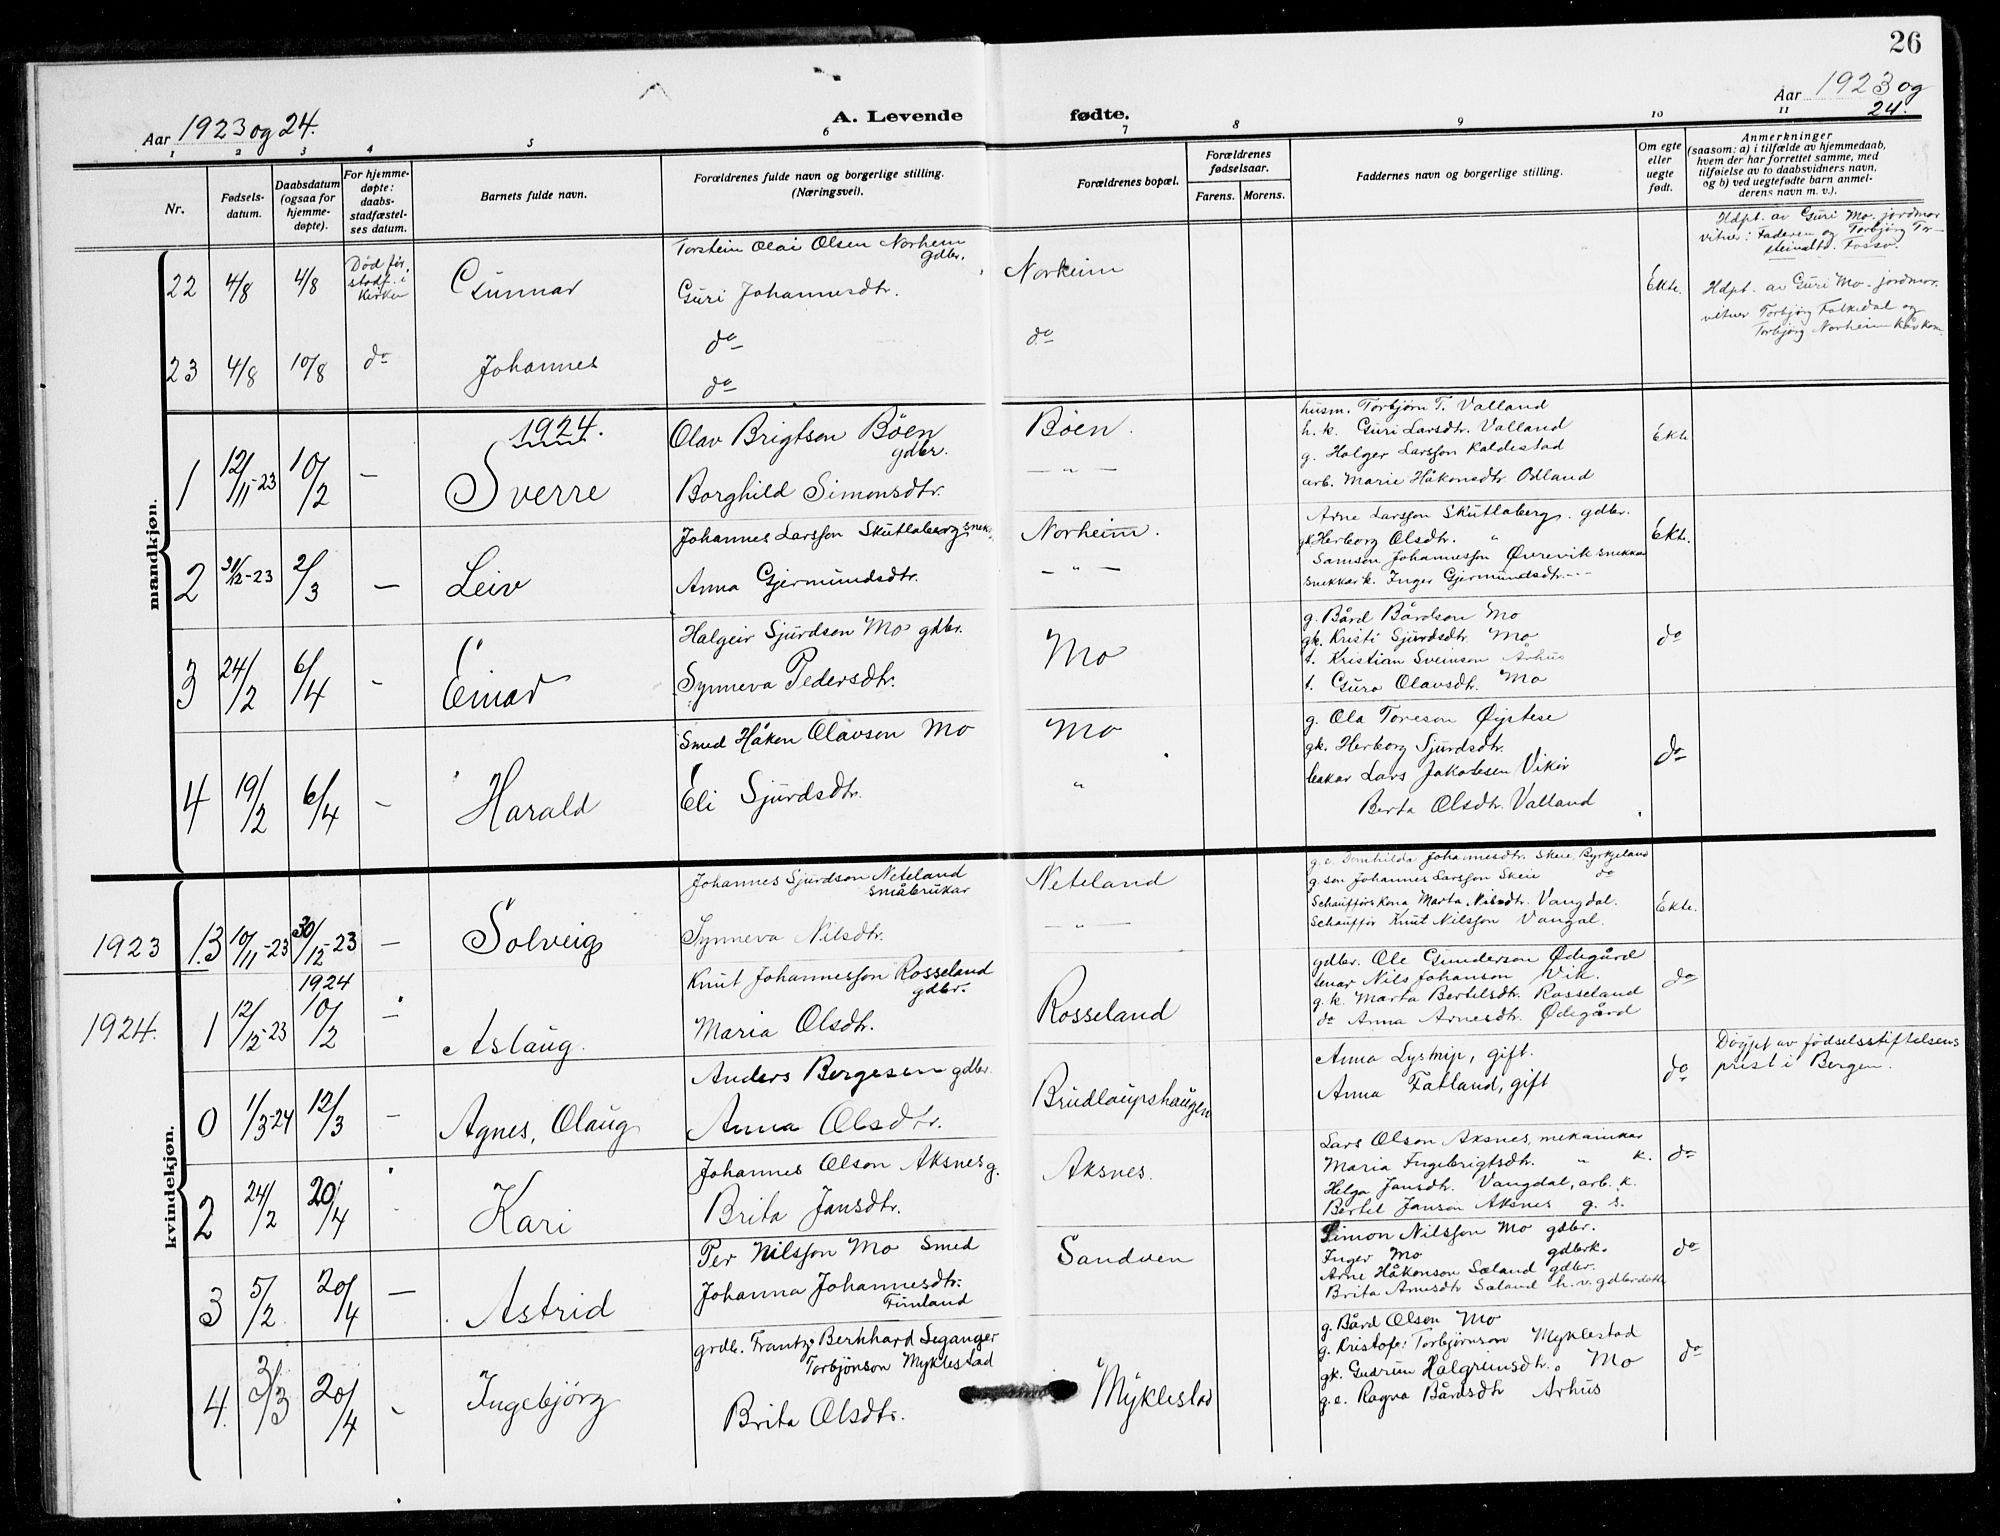 26
Aar 1923 og 24.
A. Levende fødte.
Aar 1923 og 24.
1 2 3 4 5 6 7 8 9 10 11
Nr.
Fødsels-
datum.
Daabsdatum
(ogsaa for
hjemme-
døpte).
For hjemme-
døpte:
daabs-
stadfæstel-
ses datum.
Barnets fulde navn.
Forældrenes fulde navn og borgerlige stilling.
(Næringsvei).
Forældrenes bopæl.
Forældrenes
fødselsaar.
Farens. Morens.
Faddernes navn og borgerlige stilling.
Om egte
eller
uegte
født.
Anmerkninger
(saasom: a) i tilfælde av hjemmedaab,
hvem der har forrettet samme, med
tilføielse av to daabsvidners navn,
og b) ved uegtefødte barn anmel-
derens navn m. v.).
mandkjøn.
22 4/8 4/8
Død før
stadf. i
kirken
Gunnar
Torstein Olai Olsen Norheim
gdbr.
Guri Johannesdtr.
Norheim
Ekte.
Hdpt. av Guri Mo. jordmor
vitner: Faderen og Torbjørg Tor-
steinsdtr. Fosso.
23 4/8 10/8 do Johannes
do
do
do
Hdpt. av Guri Mo. jordmor.
vitner Torbjørg Falkedal og
Torbjørg Norheim
1924.
1 12/11-23 10/2 — Sverre
Olav Brigtson Böen
gdbr.
Borghild Simonsdtr.
Böen.
— " —
husm. Torbjørn T. Valland
h. k. Guri Larsdtr. Valland
g. Holger Larsson Kaldestad
arb. Marie Håkonsdtr Odland
Ekte
2 31/12-23 2/3 — Leiv
Johannes Larsson Skutlaberg snek.
Anna Gjermundsdtr.
Norheim.
— " —
Arne Larsson Skutlaberg. gdbr.
gk Herborg Olsdtr. "
Samson Johannesson Øvrevik snekkar
snekkark. Inger Gjermundsdtr. - -
Ekte.
3 24/2 6/4 - Einar
Halgeir Sjurdson Mo gdbr.
Synneva Pedersdtr.
Mo
g. Bård Bårdson Mo
gk. Kristi Sjurdsdtr. Mo
t. Kristian Sveinson Århus
t. Guro Olavsdtr. Mo
do
4 19/2 6/4 - Harald
Smed Håkon Olavson Mo
Eli Sjurdsdtr.
Mo
"
g. Ola Toreson Øystese
gk. Herborg Sjurdsdtr.
Lars Jakobsen Vikir
Berta Olsdtr. Valland
do
kvindekjøn.
1923 13 10/11-23 30/12-23 — Solveig
Johannes Sjurdson Neteland
småbrukar
Synneva Nilsdtr.
Neteland
— " —
g. e. Domhilda Johannesdtr. Skeie, Byrkjeland
g. son Johannes Larsson Skeie do
Schaufförskona Marta Nilsdtr. Vangdal.
Schaufför Knut Nilsson Vangal.
Ekte.
1924
1924. 1 12/12-23 10/2 — Aslaug.
Knut Johannesson Rosseland
gdbr.
Maria Olsdtr.
Rosseland
gdbr. Ole Gunderson Ødegård
Nils Johanson Vik.
g. k. Marta Bertilsdtr. Rosseland
do Anna Arnesdtr. Ødegård
do
0 1/3-24 12/3 - Agnes, Olaug
Anders Bergesen gdbr.
Anna Olsdtr.
Brudlaupshaugen
Anna Lystrup, gift.
Anna Fatland, gift
do
Døypt av fødselsstiftelsens
prest i Bergen.
2 24/2 20/4 - Kari
Johannes Olson Aksnes g.
Brita Jansdtr.
Aksnes.
Lars Olson Aksnes, mekanikar
Maria Ingebrigtsdtr. " k.
Helga Jansdtr. Vangdal, arb. k.
Bertel Janson Aksnes g. s.
do
3 5/2 20/4 — Astrid
Per Nilsson Mo Smed
Johanna Johannesdtr.
Finland
Sandven
Simon Nilsson Mo gdbr.
Inger Mo gdbrk.
Arne Håkonson Sæland gdbr.
Brita Arnesdtr Sæland h. v. gdbrdatter
do
4. 2/3 20/4 - Ingebjörg
grdb. Frantz Bernhard Seganger
Torbjönson Myklestad
Brita Olsdtr.
Myklestad
g. Bård Olson Mo
g. Kristofe: Torbjørnson Myklestad
gk. Gudrun Halgrimsdtr. Mo
g. e. Ragna Bårdsdtr Århus
do